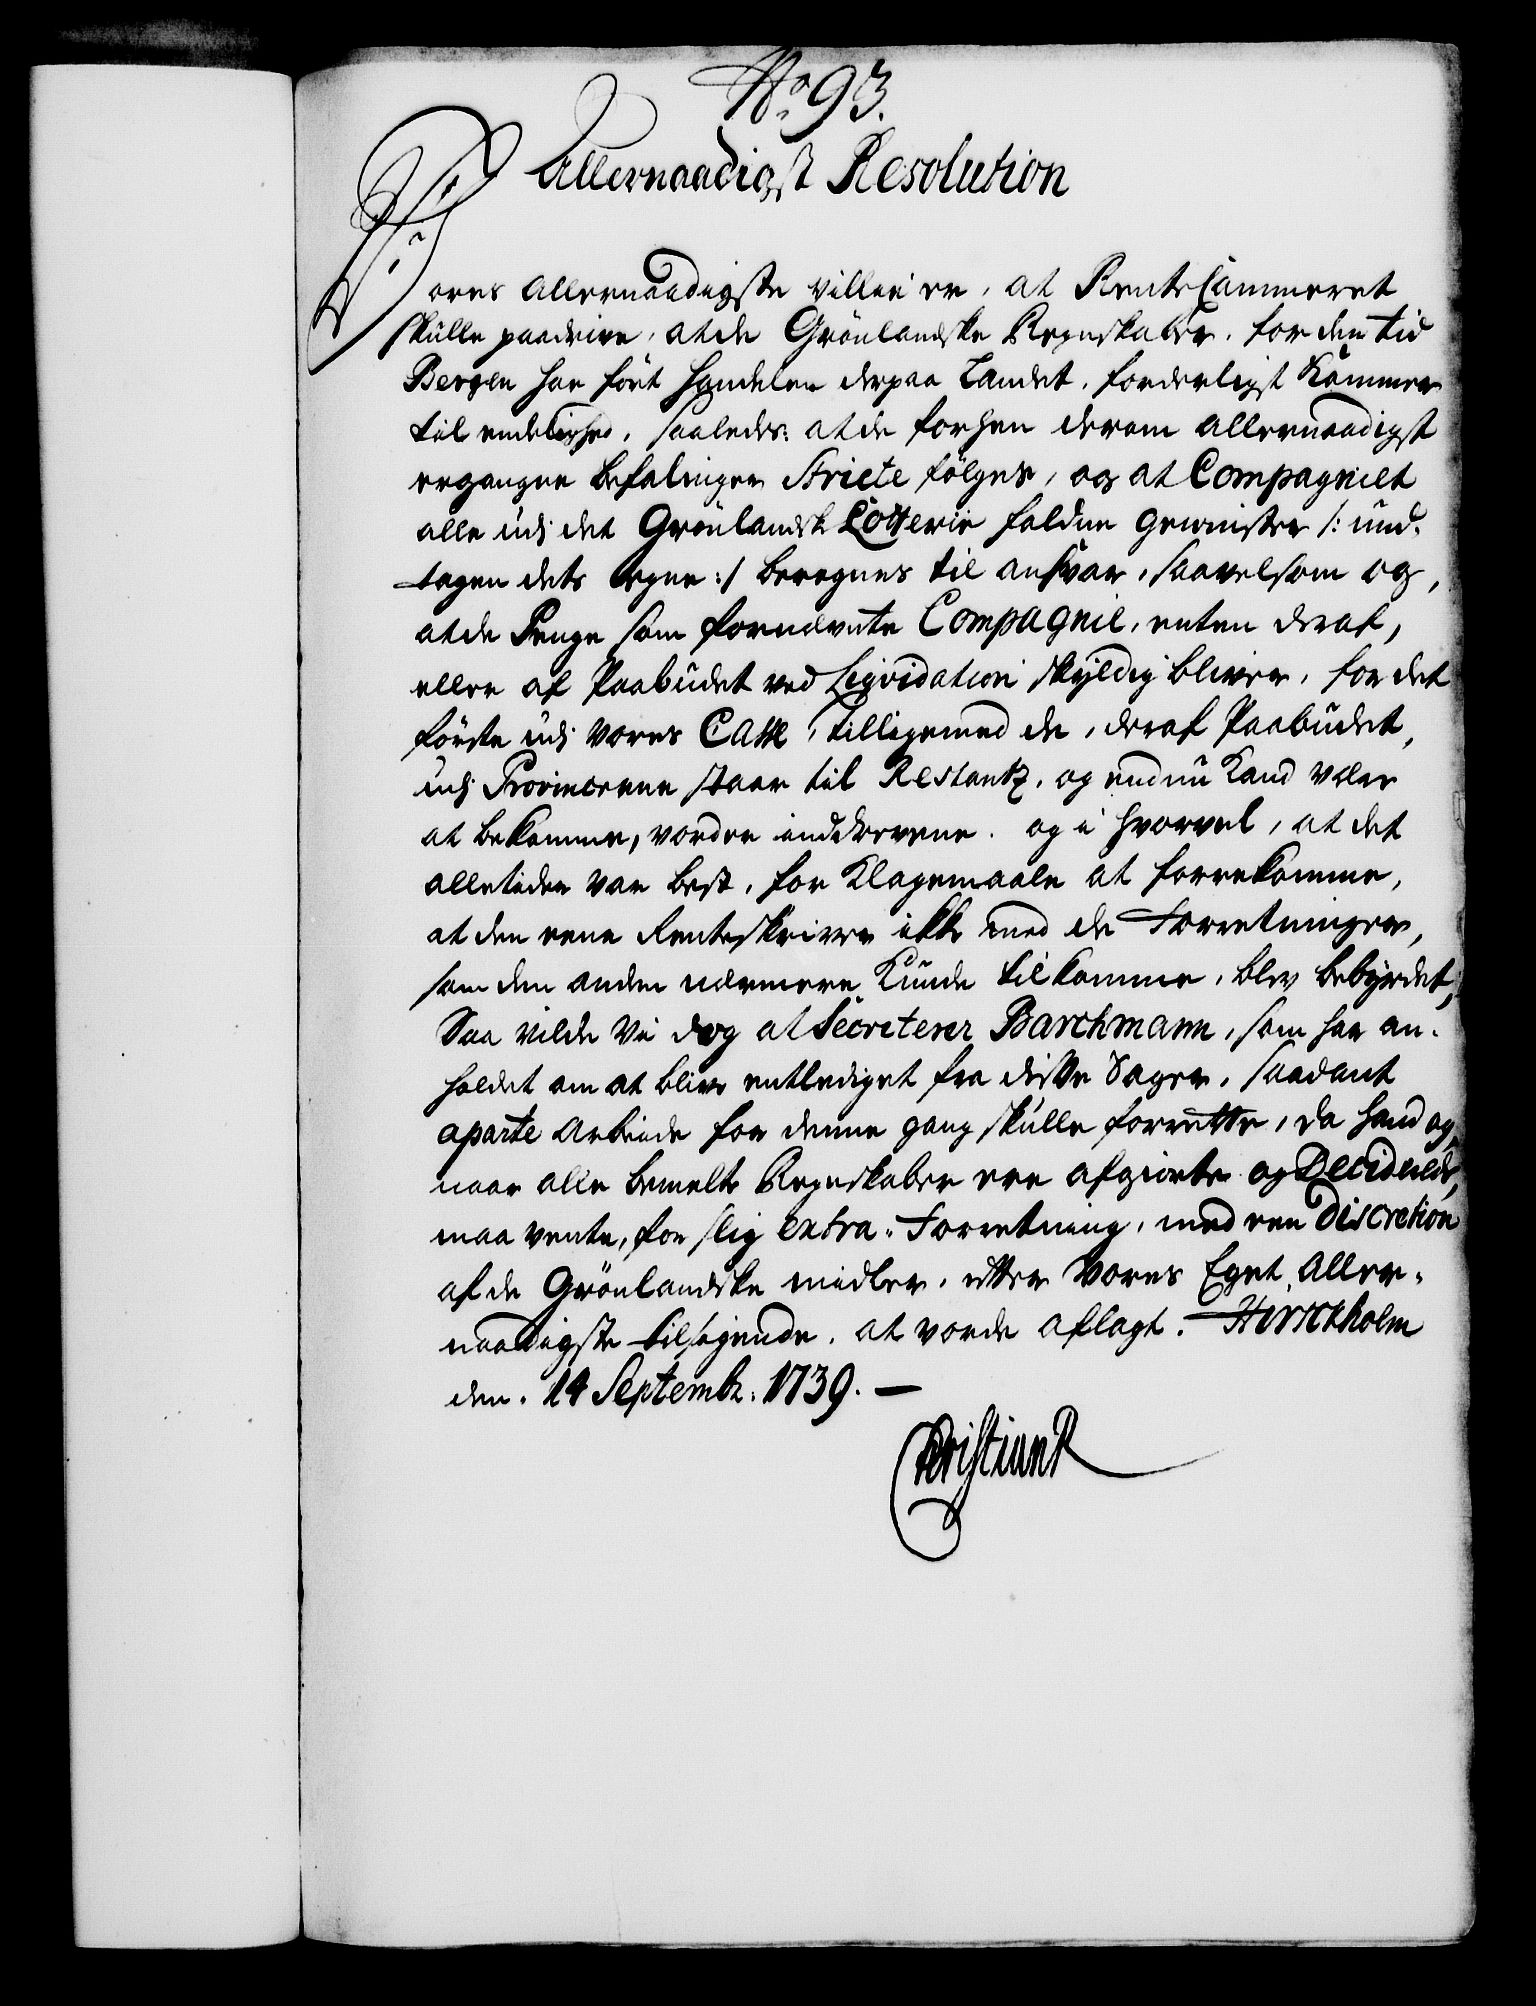 No. 93.
Allernaadigst Resolution
Vores Allernaadigste Villie er, at RenteCammeret
skulle paadrive, at de Grönlandske Regnskaber, for den tid
Bergen har fört Handelen derpaa Landet, forderligst Kommer
til endelighed, saaledes: at de forhen derom allernaadigst
ergangne befalinger Stricte fölges, og at Compagniet
alle udj det Grönlandsk Lotterie faldne Gewinster /: und-
tagen dets egne :/ beregnes til ansvar, saavelsom og,
at de Penge som fornævnte Compagnie, enten deraf,
eller af Paabudet ved Liqvidation skyldig bliver, for det
förste udj Vores Casse, tilligemed de, deraf Paabudet,
udj Provincerne staar til Restantz, og endnu Kand være
at bekomme, vorder inddrevene. og i hvorvel, at det
alletider var best, for Klagemaale at forrekomme,
at den eene Renteskriver ikke med de Forretninger,
som den anden nærmere Kunde tilkomme, blev bebyrdet,
Saa vilde Vi dog at Secreterer Barchmann, som har an-
holdet om at blive entlediget fra disse Sager, saadant
aparte Arbeide for denne gang skulle forrette, da hand og,
naar alle bemelte Regnskaber ere afgiorte og Deciderede,
maa vente, for slig extra-Forretning, med een Discretion
af de Grönlandske midler, efter Vores Eget Aller-
naadigste tilsigende, at vorde aflagt. Hirschholm
den. 14 Septembr: 1739. —
Christian R